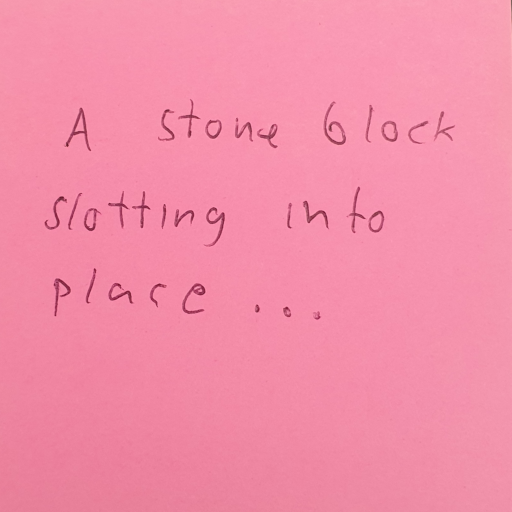 A stone block
slotting into
place ...